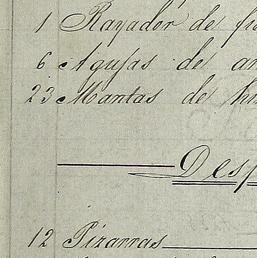 1 Rayador de
6 Agujas de
23 Mantas de
Desp
12 Pizarras